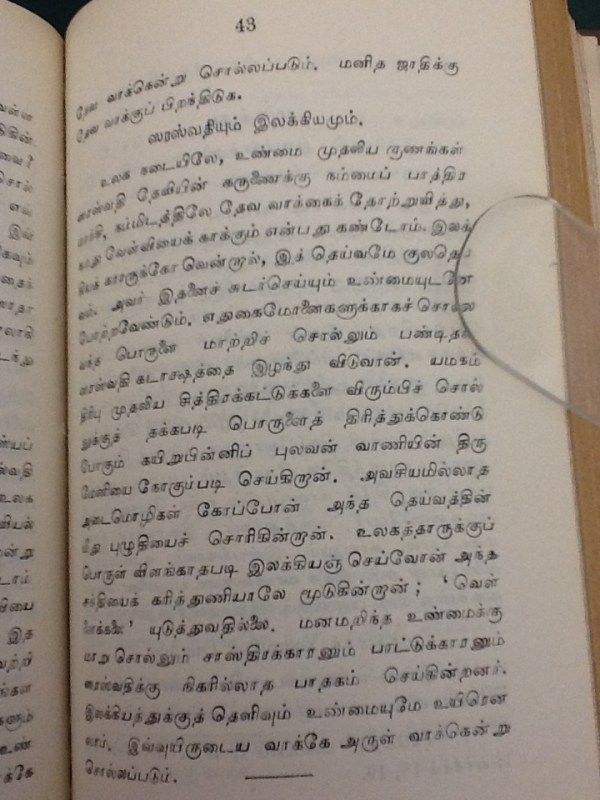 43
தேவ வாக்கென்று சொல்லப்படும். மனித ஜாதிக்கு
தேவ வாக்குப் பிறந்திடுக.
ஸரஸ்வதியும் இலக்கியமும்.
உலக நடையிலே, உண்மை முதலிய குணங்கள்
ஸரஸ்வதி தேவியின் கருணைக்கு நம்மைப் பாத்திர
மாக்கி, நம்மிடத்திலே தேவ வாக்கைத் தோற்றுவித்து,
நமது வேள்வியைக் காக்கும் என்பது கண்டோம். இலக்
கியக் காரருக்கோ வென்றால், இத் தெய்வமே குலதெய்
வம். அவர் இதனைச் சுடர்செய்யும் உண்மையுடனே
போற்றவேண்டும். எதுகைமோனைகளுக்காகச் சொல்ல
வந்த பொருளை மாற்றிச் சொல்லும் பண்டிதன்
ஸரஸ்வதி கடாக்ஷத்தை இழந்து விடுவான். யமகம்
திரிபு முதலிய சித்திரக்கட்டுக்களை விரும்பிச் சொல்
லுக்குத் தக்கபடி பொருளைத் திரித்துக்கொண்டு
போகும் கயிறுபின்னிப் புலவன் வாணியின் திரு
மேனியை நோகும்படி செய்கிறான். அவசியமில்லாத
அடைமொழிகள் கோப்போன் அந்த தெய்வத்தின்
மீது புழுதியைச் சொரிகின்றான். உலகத்தாருக்குப்
பொருள் விளங்காதபடி இலக்கியஞ் செய்வோன் அந்த
சக்தியைக் கரித்துணியாலே மூடுகின்றான்; 'வெள்
ளைக்கலை' யுடுத்துவதில்லை. மனமறிந்த உண்மைக்கு
மாறு சொல்லும் சாஸ்திரக்காரனும் பாட்டுக்காரனும்
ஸரஸ்வதிக்கு நிகரில்லாத பாதகம் செய்கின்றனர்.
இலக்கியத்துக்குத் தெளிவும் உண்மையுமே உயிரென
லாம். இவ்வுயிருடைய வாக்கே அருள் வாக்கென்று
சொல்லப்படும்.